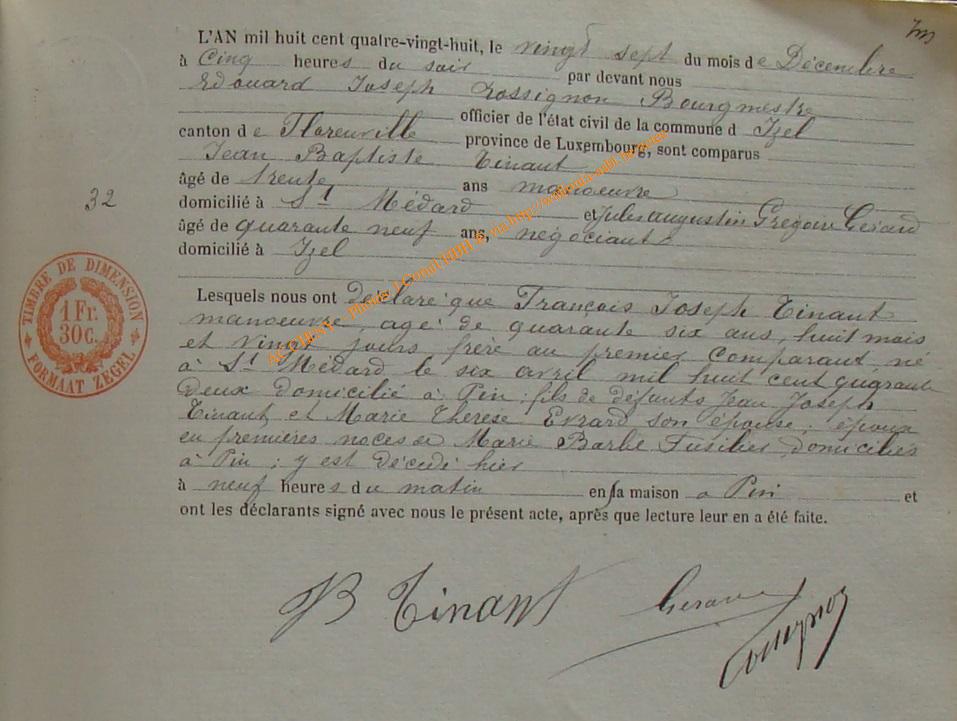 L'AN mil huit cent quatre-vingt-huit, le vingt sept du mois de Décembre
à Cinq heures du soir par devant nous
Edouard Joseph Rossignon Bourgmestre
officier de l'état civil de la commune d Izel
canton de Florenville province de Luxembourg, sont comparus
Jean Baptiste Tinant
âgé de trente ans manoeuvre
domicilié à St Médard et Jules Augustin Grégoire Gérard
âgé de quarante neuf ans, négociant
domicilié à Izel
32
TIMBRE DE DIMENSION
1 Fr.
30c.
FORMAAT ZEGEL
Lesquels nous ont déclaré que François Joseph Tinant
manoeuvre, agé de quarante six ans, huit mois
et vingt jours frère au premier comparant, né
à St Médard le six avril mil huit cent quarante
deux domicilié à Pin ; fils de défunts Jean Joseph
Tinant et Marie Therèse Evrard son épouse ; époux
en premières noces de Marie Barbe Fusilier domiciliés
à Pin ; y est décédé hier
à neuf heures du matin en sa maison à Pin et
ont les déclarants signé avec nous le présent acte, après que lecture leur en a été faite.
JB Tinant
Gerard
Rossignon